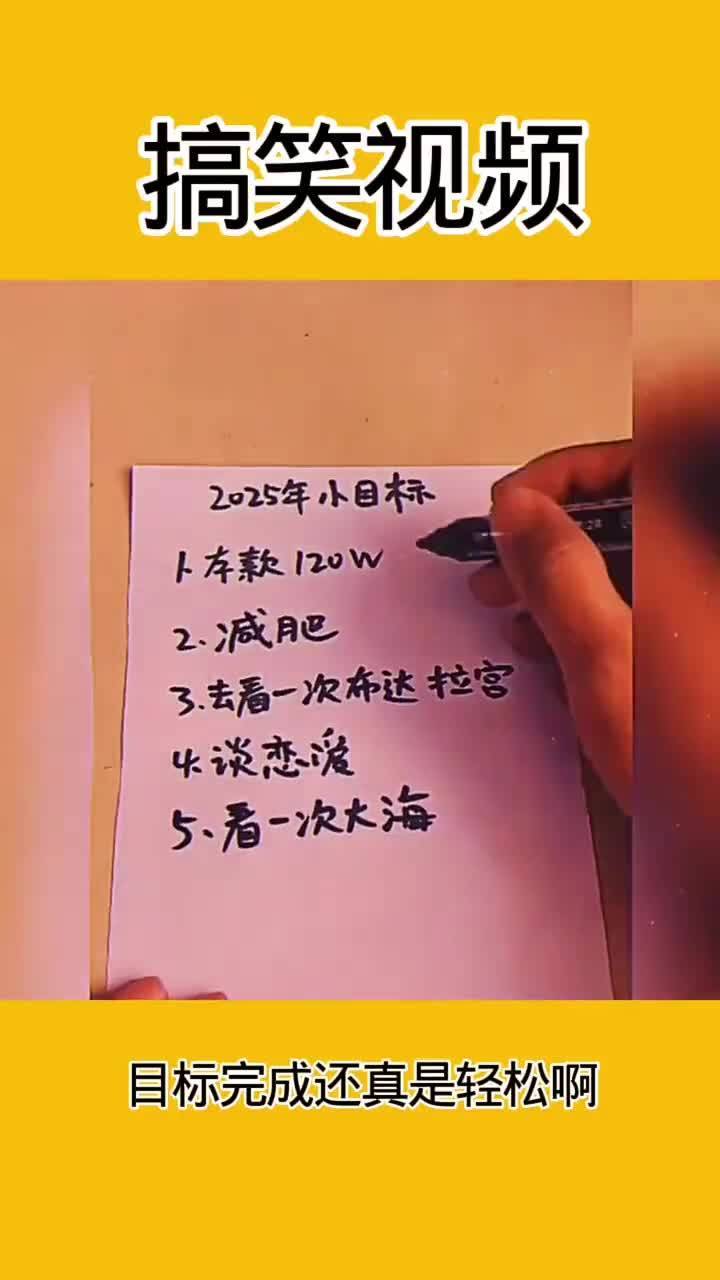 搞笑视频
2025年小目标
1.存款120W
2.减肥
3.去看一次布达拉宫
4.谈恋爱
5、看一次大海
目标完成还真是轻松啊